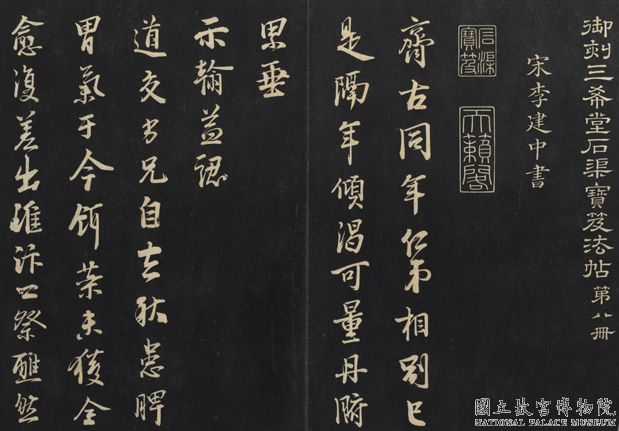 御刻三希堂石渠寶笈法帖 第八冊
宋李建中書
石渠寶笈
天籟閣
齊古同年仁弟相別已
是隔年傾渴可量丹腑
思垂
示翰益認
道交專兄自去秋患脾
胃氣于今餌藥未獲全
愈復差出雄汴四祭醮然
國立故宮博物院
NATIONAL PALACE MUSEUM